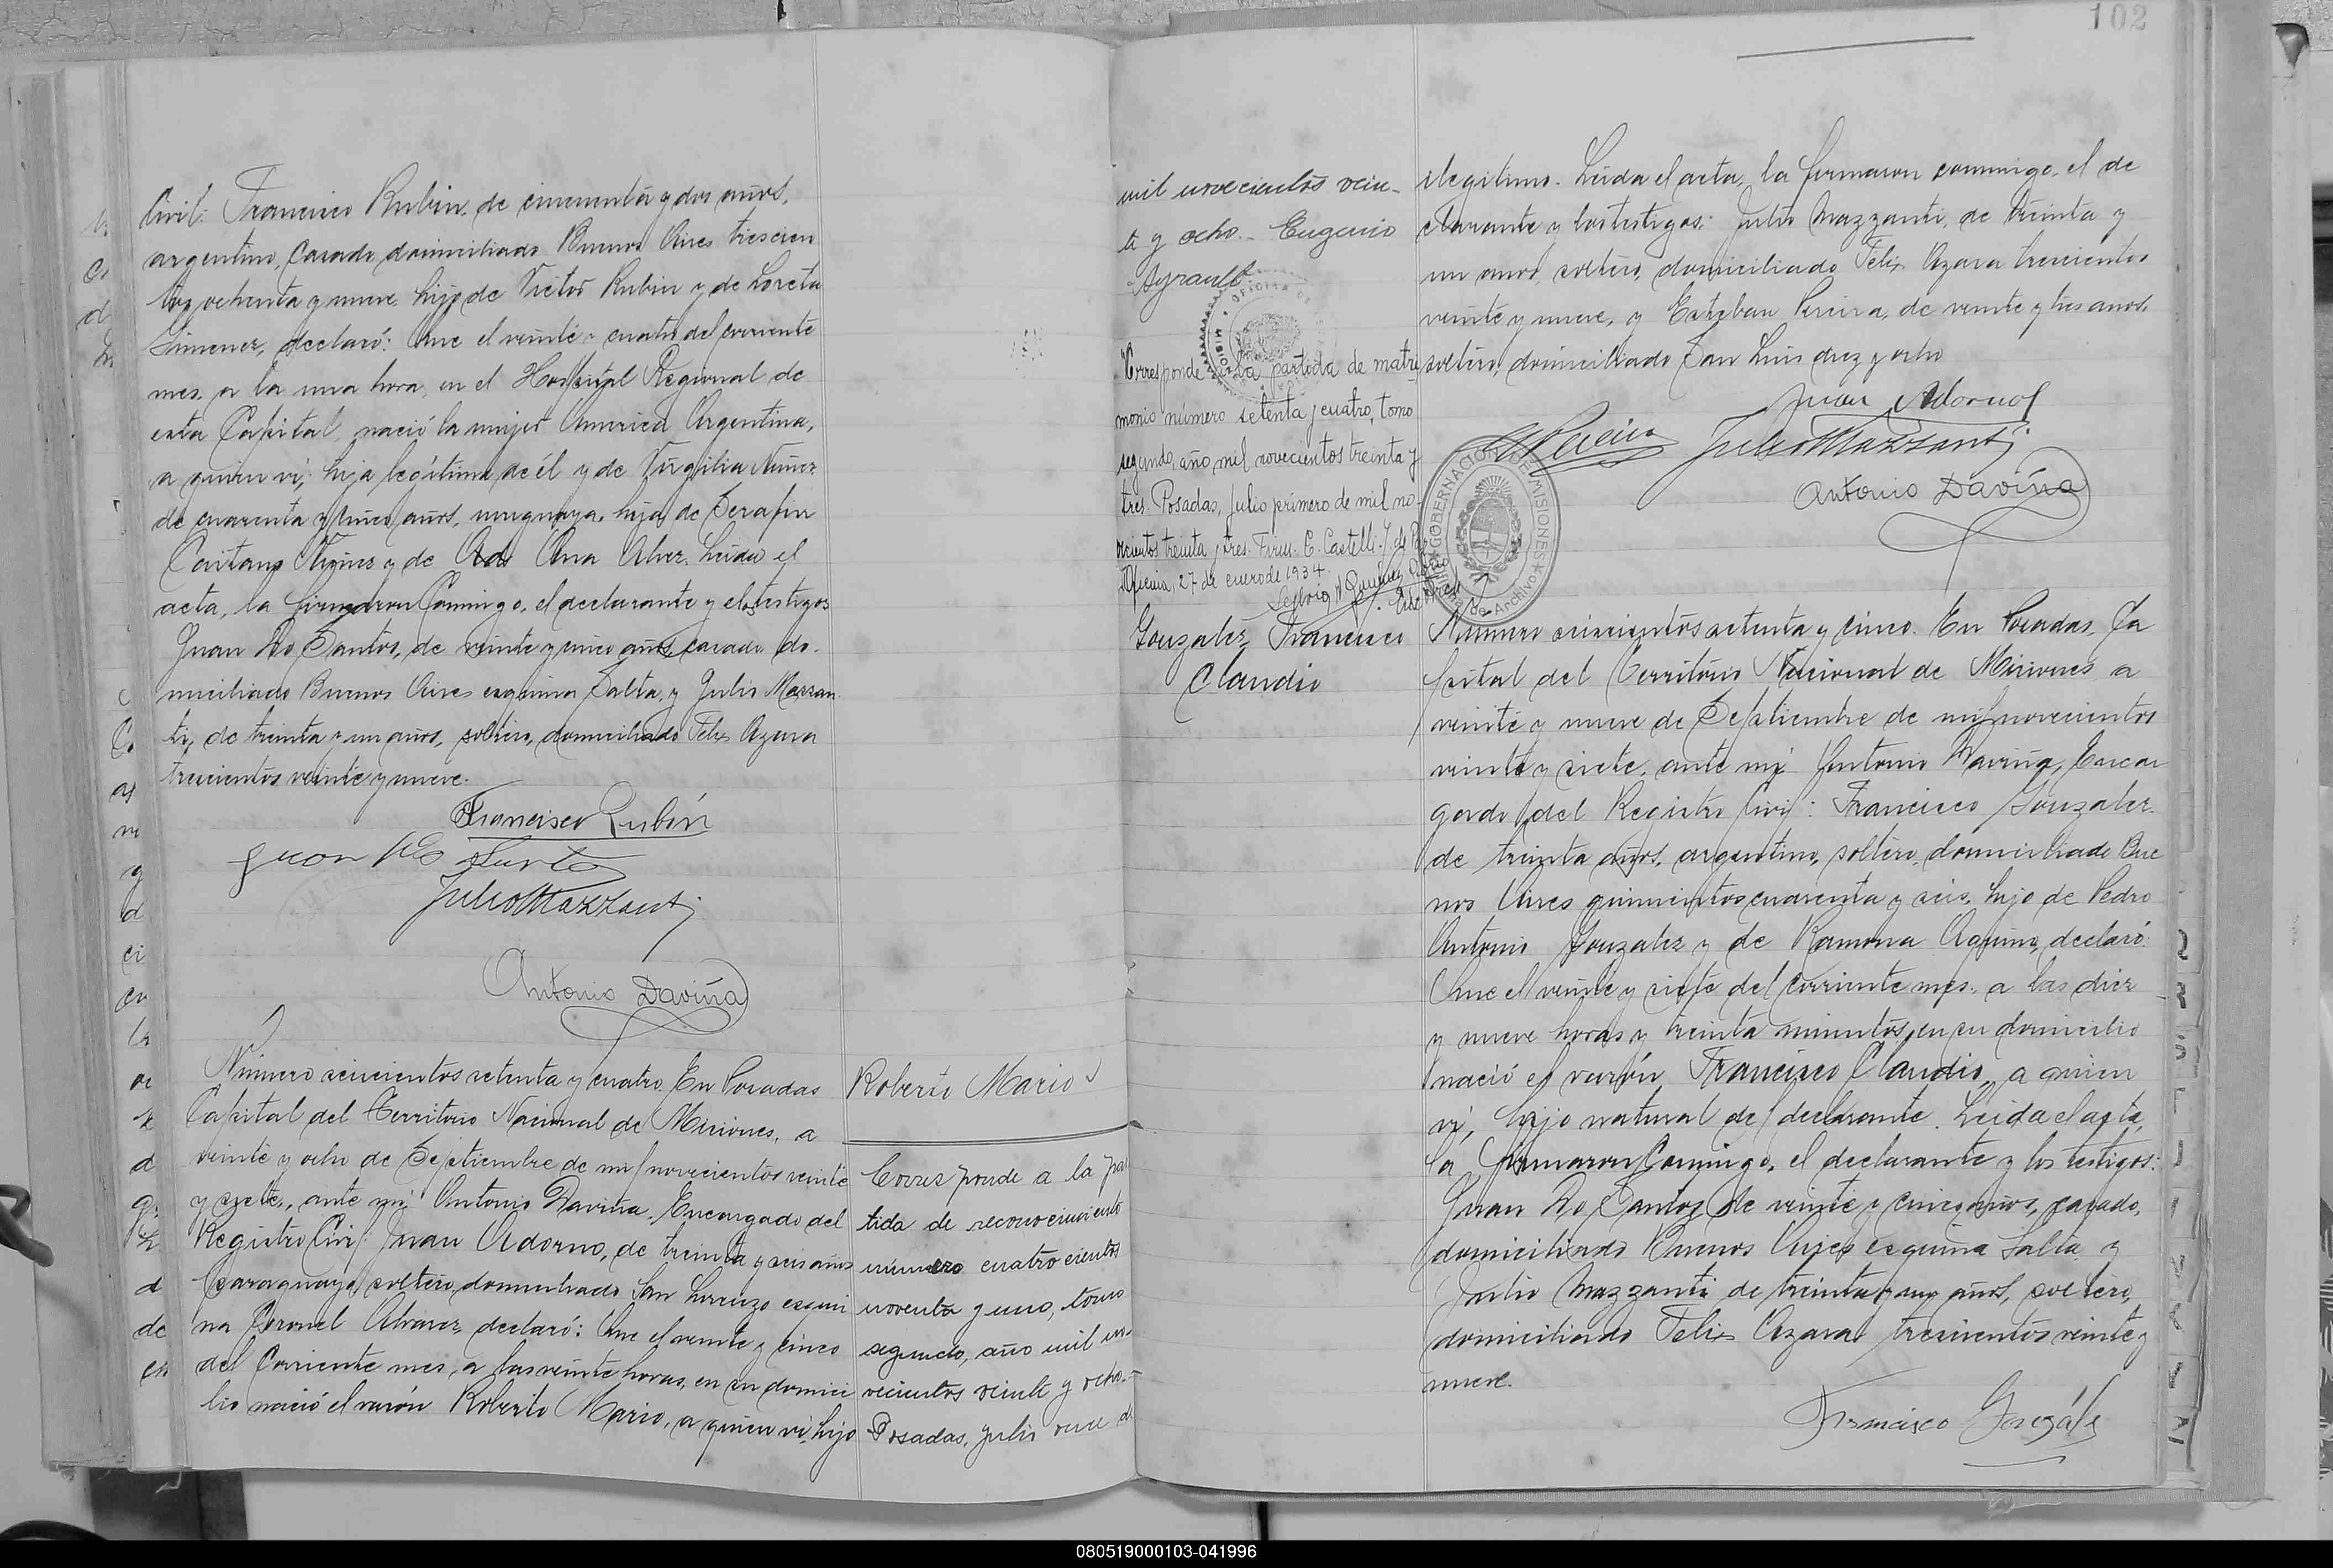 Civil: Francisco Rubin, de cincuenta y dos años,
argentino, casado, domiciliado Buenos Aires trescien
tos ochenta y nueve, hijo de Victor Rubin y de Loreta
Gimenez, declaró: Que el veinte y cuatro del corriente
mes, a la una hora, en el Hospital Regional de
esta Capital, nació la mujer America Argentina,
a quien vi, hija legítima de él y de Virgilia Nuñez
de cuarenta y cinco años, uruguaya, hija de Serafin
Caitano Nuñez y de Ana Alvez. Leida el
acta, la firmaron Conmigo, el declarante y los testigos
Juan Do Santos, de veinte y cinco años, casado, do-
miciliado Buenos Aires esquina Salta, y Julio Mazzan
ti, de treinta y un años, soltero, domiciliado Felix Azara
trescientos veinte y nueve.
Francisco Rubin
Julio Mazzanti
Antonio Daviña
Número seiscientos setenta y cuatro. En Posadas
Capital del Territorio Nacional de Misiones, a
veinte y ocho de Septiembre de mil novecientos veinte
y siete, ante mi Antonio Daviña, Encargado del
Registro Civil: Juan Adorno, de treinta y seis años
paraguayo, soltero, domiciliado San Lorenzo esqui
na Coronel Alvarez, declaró: Que el veinte y cinco
del Corriente mes, a las veinte horas, en su domici
lio nació el varón Roberto Mario, a quien vi, hijo
Roberto Mario
Corresponde a la par
tida de reconocimiento
número cuatrocientos
noventa y uno, tomo
segundo, año mil no-
vecientos veinte y ocho.-
Posadas, Julio once de
102
mil novecientos vein-
te y ocho.- Eugenio
Ayrault
Corresponde a la partida de matri
monio número setenta y cuatro, tomo
segundo, año mil novecientos treinta y
tres. Posadas, Julio primero de mil no-
vecientos treinta y tres. Firm. E. Castelli. J. de Paz
Oficina, 27 de enero de 1934.
GOBERNACION DE MISIONES
Archivo
ilegitimo. Leida el acta, la firmaron conmigo, el de
clarante y los testigos: Julio Mazzanti, de treinta y
un años, soltero, domiciliado Felix Azara trescientos
veinte y nueve, y Esteban Pereira, de veinte y tres años,
soltero, domiciliado San Luis diez y ocho
Juan Adorno
Pereira Julio Mazzanti
Antonio Daviña
Gonzalez, Francisco
Claudio
Número seiscientos setenta y cinco. En Posadas, Ca
pital del Territorio Nacional de Misiones a
veinte y nueve de Septiembre de mil novecientos
veinte y siete, ante mi Antonio Daviña, Encar
gado del Registro Civil: Francisco Gonzalez,
de treinta años, argentino, soltero, domiciliado Bue
nos Aires quinientos cuarenta y seis, hijo de Pedro
Antonio Gonzalez y de Ramona Aquino, declaró:
Que el veinte y siete del corriente mes, a las diez
y nueve horas y treinta minutos, en su domicilio
nació el varón Francisco Claudio, a quien
vi, hijo natural del declarante. Leida el acta,
la firmaron Conmigo, el declarante y los testigos:
Juan Do Santos de veinte y cinco años, casado,
domiciliado Buenos Aires esquina Salta y
Julio Mazzanti de treinta y un años, soltero,
domiciliado Felix Azara trescientos veinte y
nueve.
Francisco Gonzáles
080519000103-041996